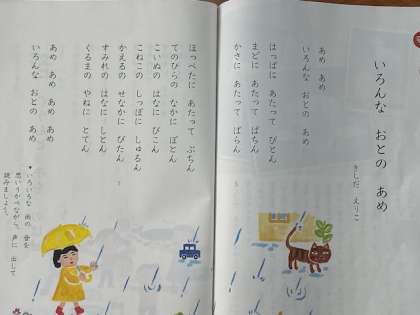 いろんな　おとの　あめ
きしだ　えりこ
あめ　あめ
いろんな　おとの　あめ
はっぱに　あたって　ぴとん
まどに　あたって　ぱちん
かさに　あたって　ぱらん
ほっぺたに　あたって　ぷちん
てのひらの　なかに　ぽとん
こいぬの　はなに　ぴこん
こねこの　しっぽに　しゅるん
かえるの　せなかに　ぴたん
すみれの　はなに　しとん
くるまの　やねに　とてん
あめ　あめ　あめ　あめ
いろんな　おとの　あめ
▼いろいろな　雨の　音を
思いうかべながら、声に　出して
読みましょう。